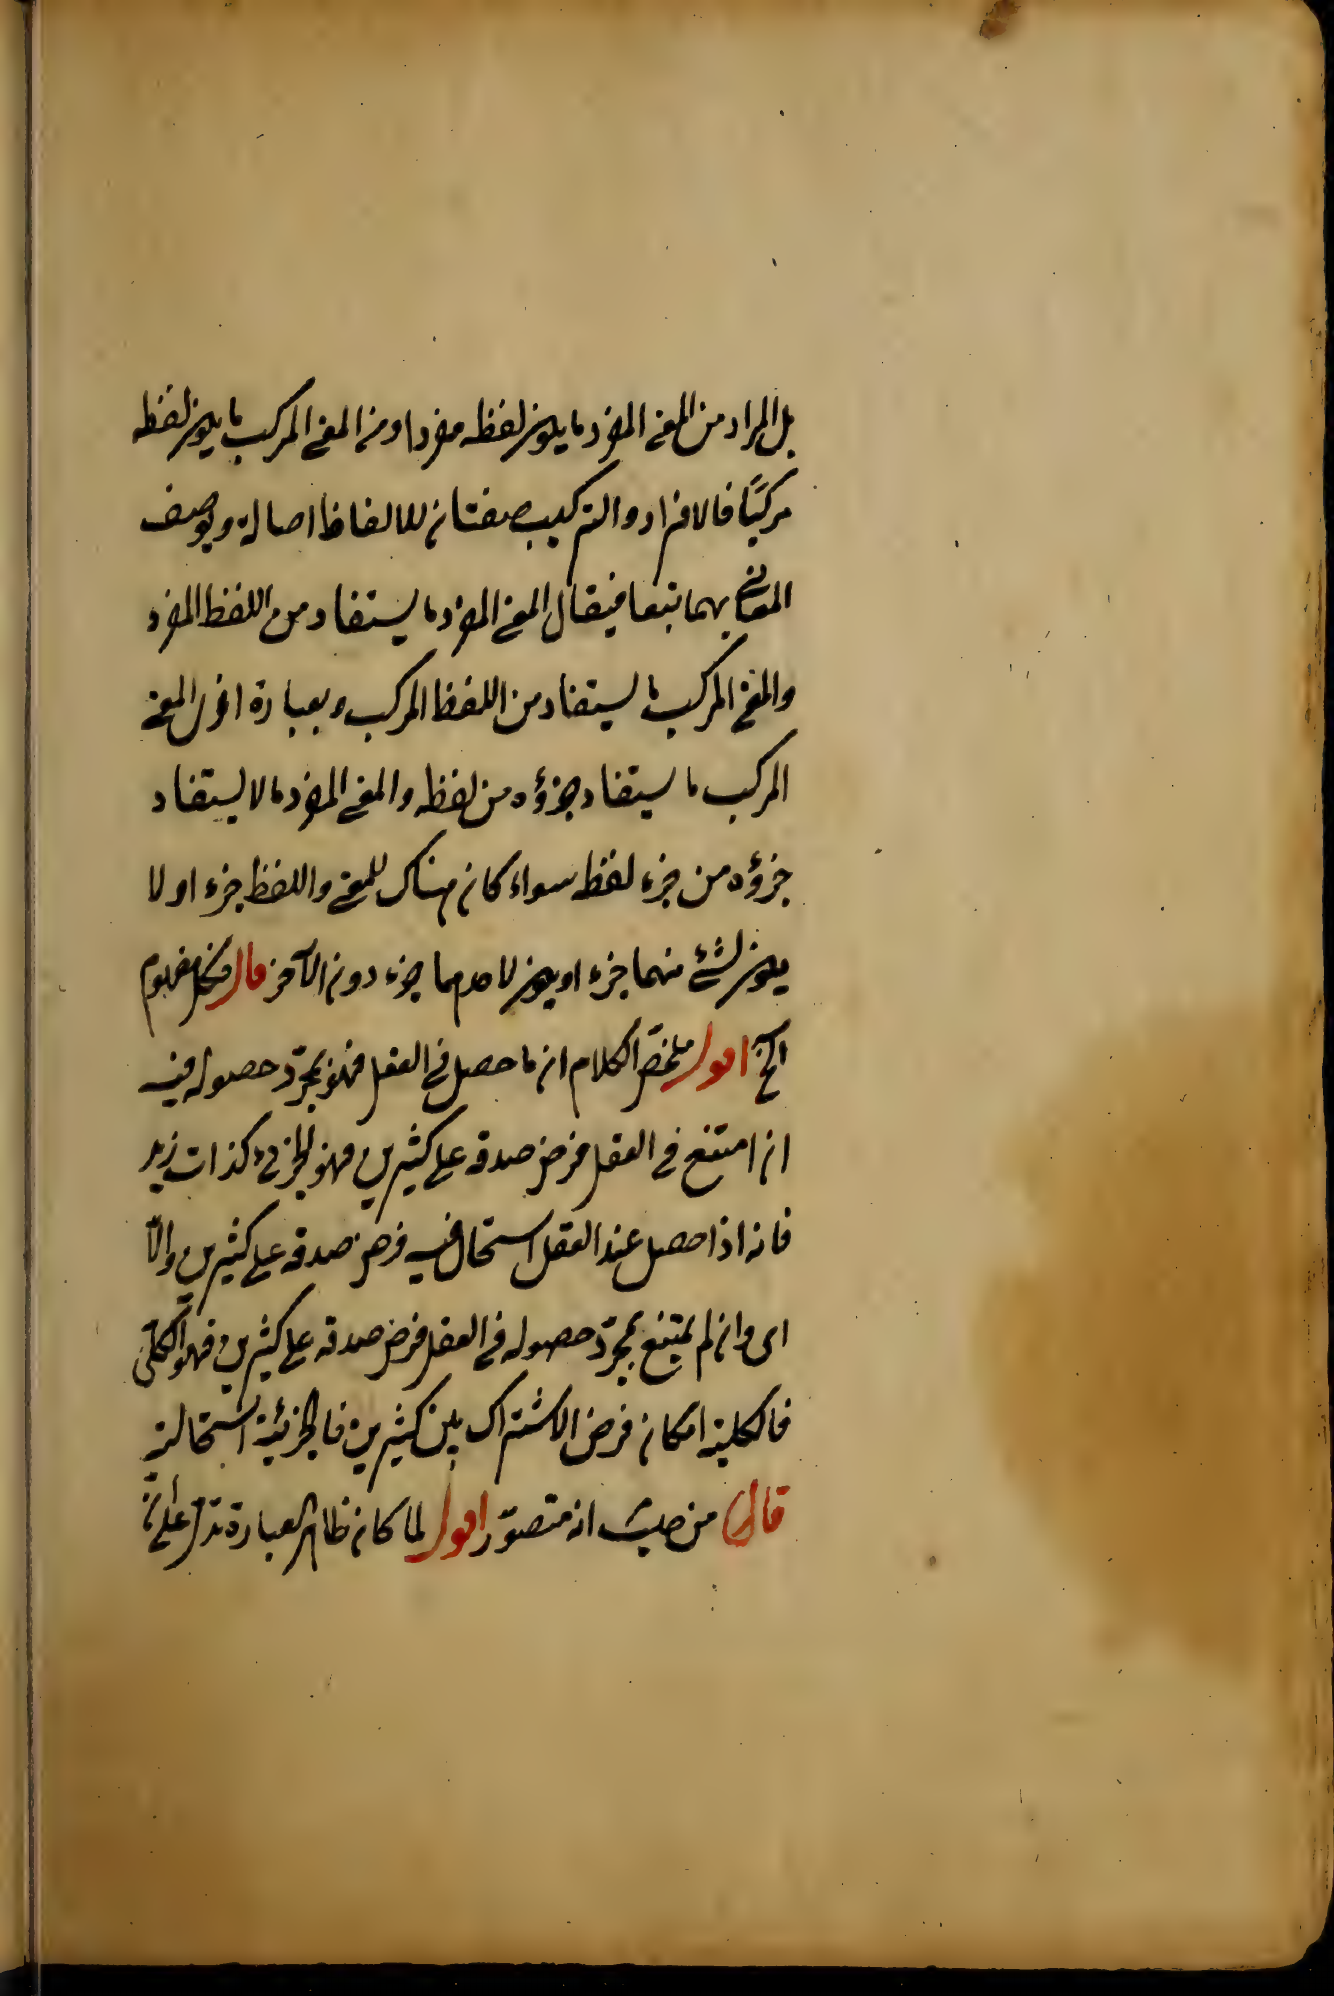 بل المراد من المعنى المفرد ما يكون لفظه مفردا ومن المعنى المركب ما يكون لفظه
مركبًا فالافراد والتركيب صفتان للالفاظ اصالة ويوصف
المعانى بهما تبعا فيقال المعنى المفرد ما يستفاد من اللفظ المفرد
والمعنى المركب ما يستفاد من اللفظ المركب وبعبارة اخرى المعنى
المركب ما يستفاد جزؤه من لفظه والمعنى المفرد ما لا يستفاد
جزؤه من جزء لفظه سواء كان هناك للمعنى واللفظ جزء او لا
يكون لشئ منهما جزء او يكون لاحدهما جزء دون الآخر قال فكل مفهوم
آلخ اقول ملخص الكلام ان ما حصل فى العقل فهو بمجرّد حصوله فيه
ان امتنع فى العقل فرض صدقه على كثيرين فهو الجزئى كذات زيد
فانه اذا حصل عند العقل استحال فيه فرض صدقه على كثيرين والّا
اى وان لم يمتنع بمجرّد حصوله فى العقل فرض صدقه على كثيرين فهو الكلّى
فالكلية امكان فرض الاشتراك بين كثيرين فالجزئية استحالته
قال من حيث انه متصوّر اقول لما كان ظاهر العبارة تدل على انّ